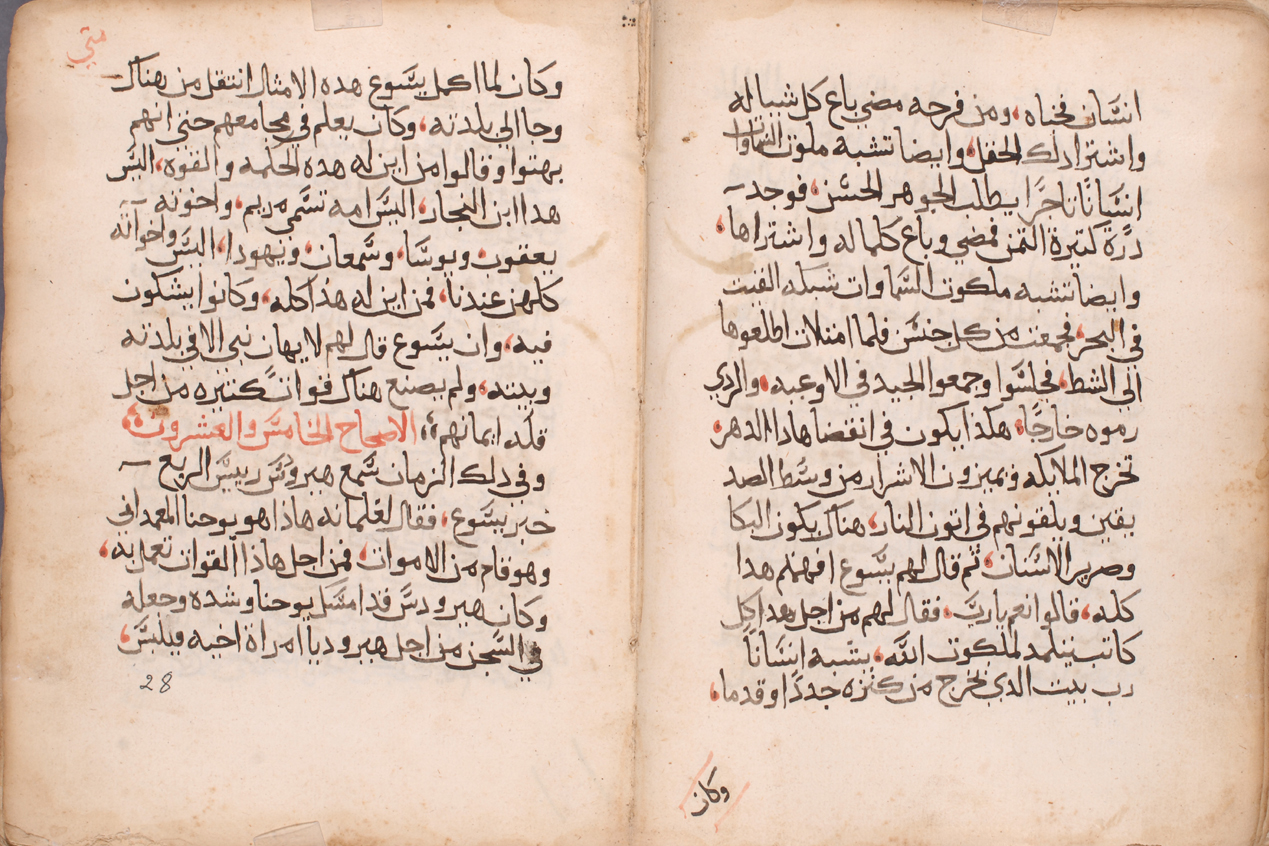 انسان فخباه، ومن فرحه مضي باع كل شيا له
واشترا دلك الحقل، وايضا تشبه ملكوت السماوات
انسانًا تاجرًا يطلب الجوهر الحسن، فوجد
درة كتيرة التمن فمضي وباع كلما له واشتراها،
وايضا تشبه ملكوت السماوات شبكه القيت
في البحر، فجمعت من كل جنس فلما امتلات اطلعوها
الي الشط، فجلسوا وجمعوا الجيد في الاوعيه، والردي
رموه خارجًا، هكذا يكون في انقضا هاذا الدهر،
تخرج الملايكه ويميزون الاشرار من وسط الصد
يقين ويلقونهم في اتون النار، هناك يكون البكا
وصرير الاسنان، ثم قال لهم يسوع افهمتم هدا
كله، قالوا نعم يارب، فقال لهم من اجل هدا كل
كاتب يتلمد لملكوت الله، يشبه انسانًا
رب بيت الدي يخرج من كنزه جددًا وقدما،
وكان
متي
وكان لما اكمل يسوع هده الامثال انتقل من هناك
وجا الي بلدته، وكان يعلم في مجامعهم حتي انهم
بهتوا وقالوا من اين له هده الحكمه والقوه، اليس
هدا ابن النجار، اليس امه تسمي مريم، واخوته
يعقوب ويوسا، وسمعان ويهودا، اليس واخواته
كلهن عندنا، فمن اين له هدا كله، وكانوا يشكون
فيه، وان يسوع قال لهم لا يهان نبي الا في بلدته
وبيته، ولم يصنع هناك قوات كتيره من اجل
قله ايمانهم، الاصحاح الخامس والعشرون
وفي دلك الزمان سمع هيرودس رييس الربع
خبر يسوع، فقال لغلمانه هاذا هو يوحنا المعمداني
وهو قام من الاموات، فمن اجل هاذا القوات تعمل به،
وكان هيرودس قد امسك يوحنا وشده وجعله
في السجن من اجل هيروديا امراة اخيه فيلبس،
28